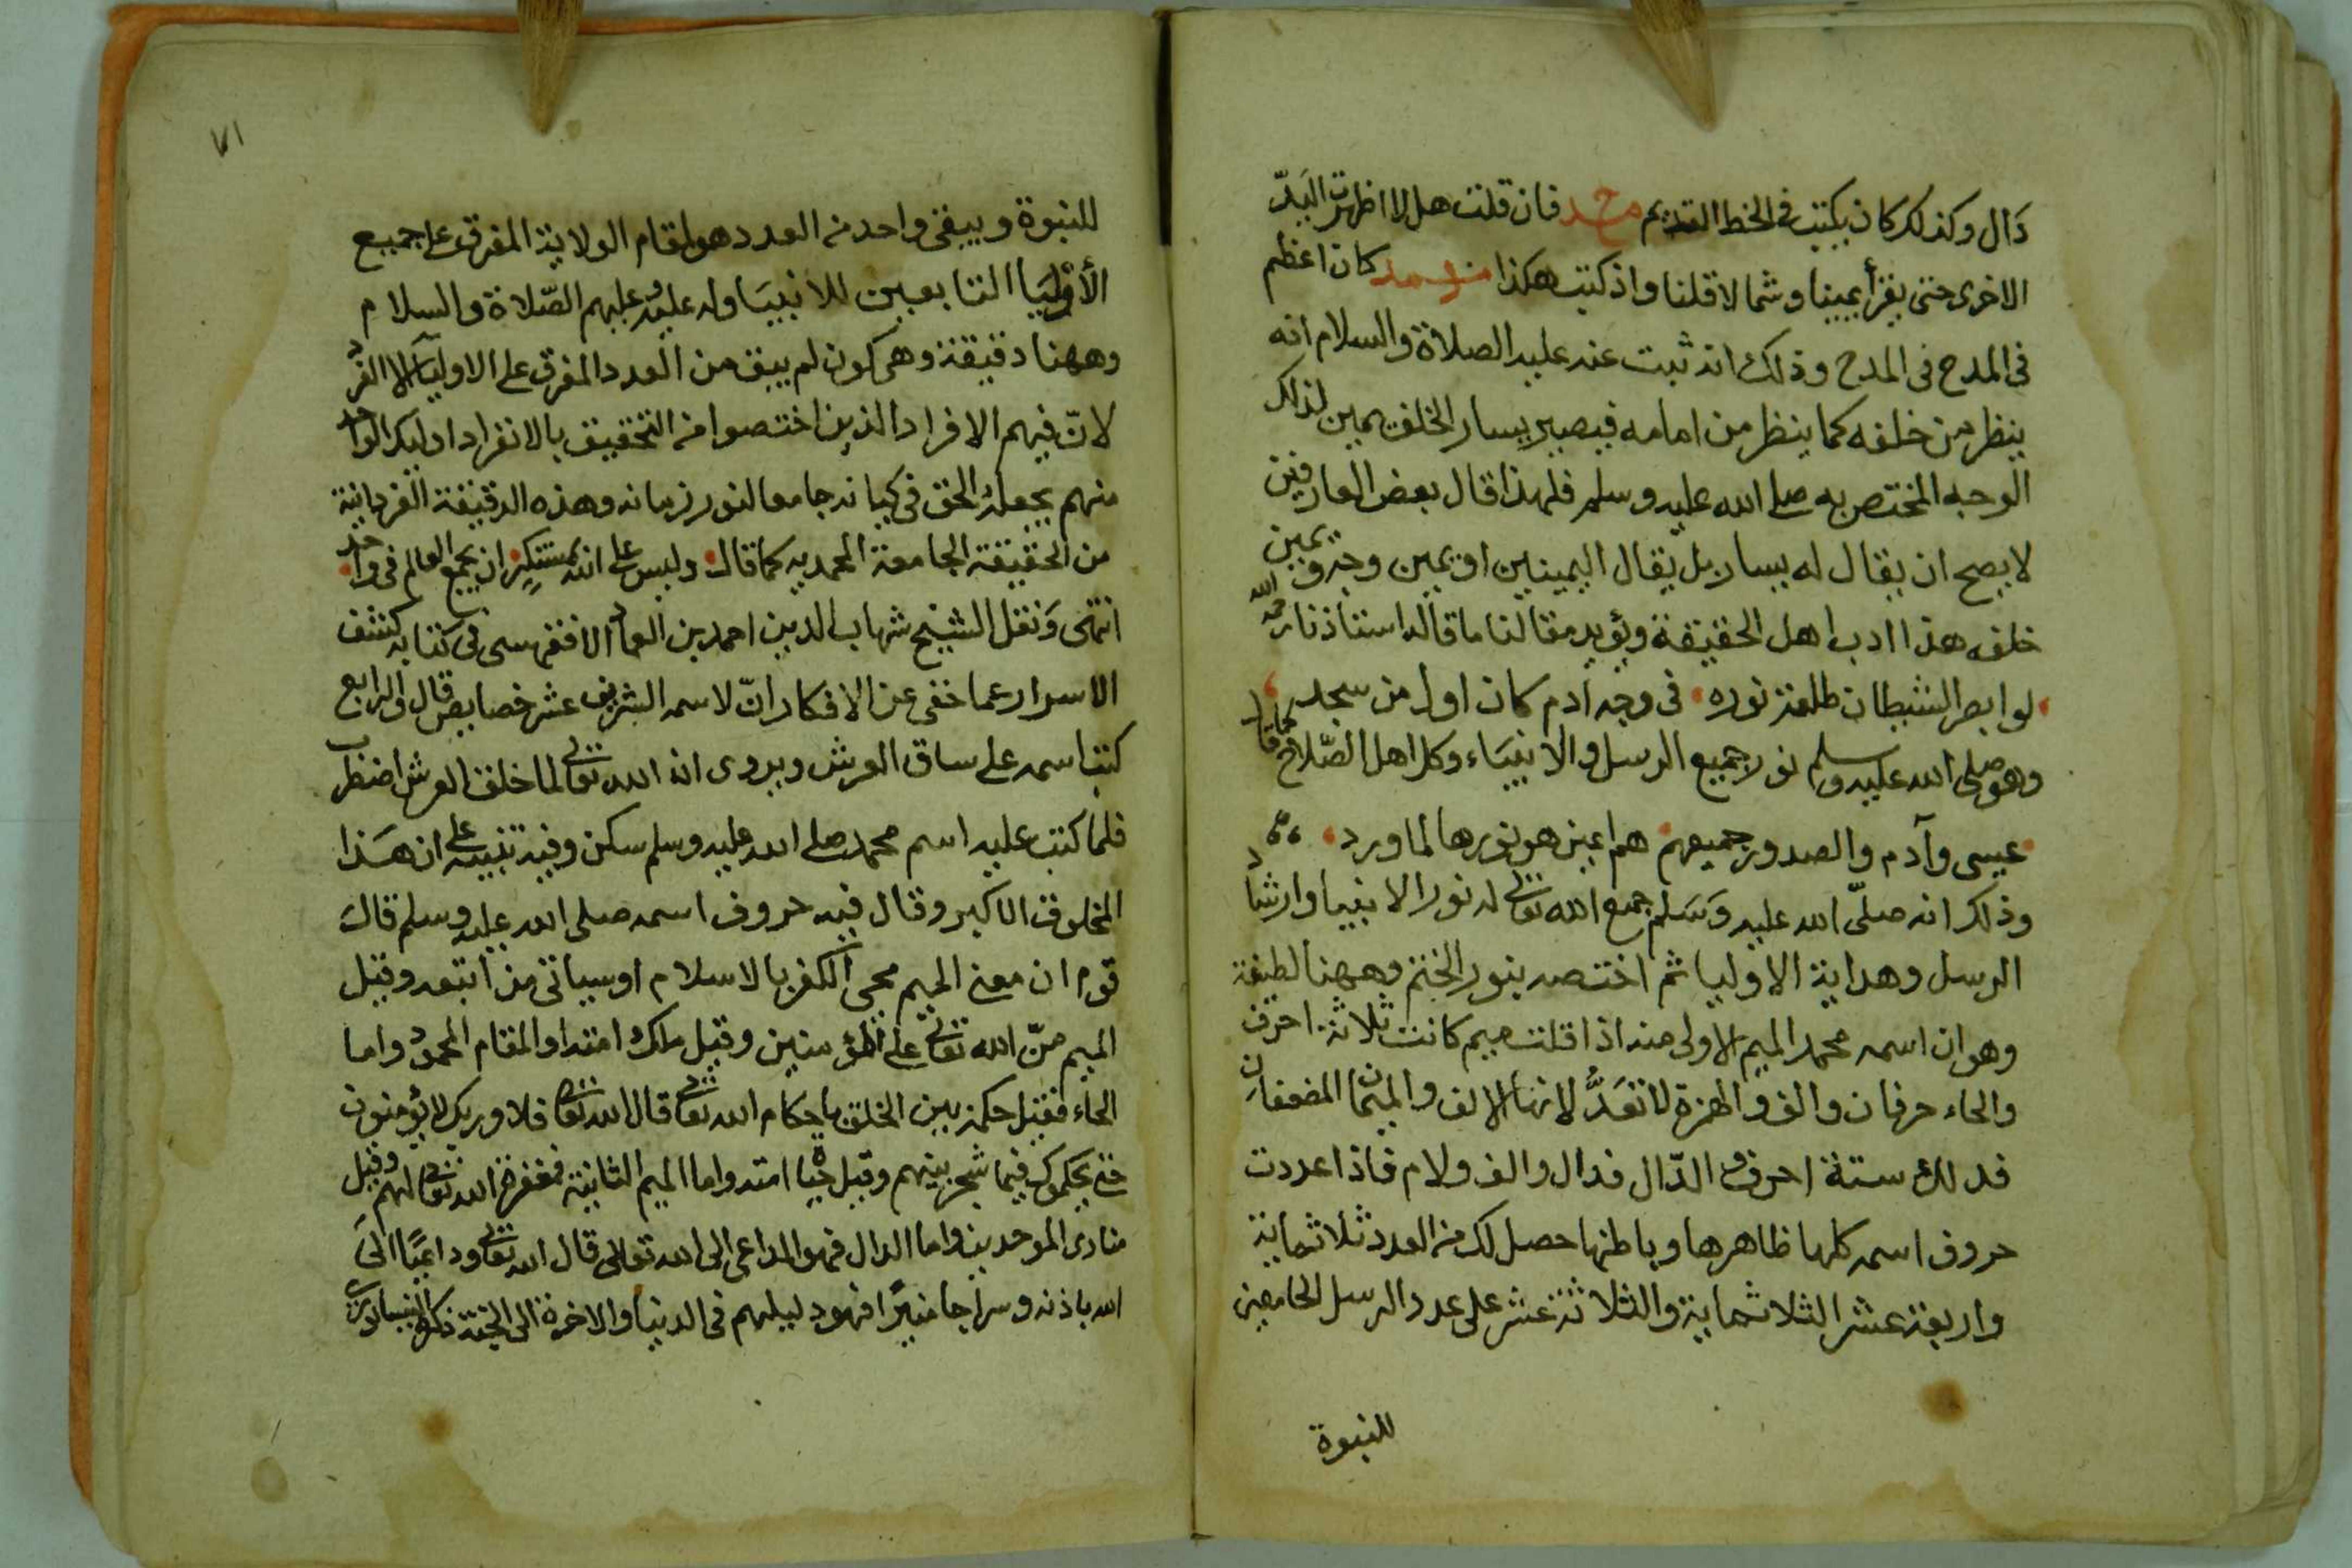 دَال وكذلك كان يكتب فى الخط القديم محمد فان قلت هلا اظهرت اليد
الاخرى حتى يقرأ يمينا وشمالا قلنا واذ كتب هكذا كان اعظم
فى المدح فى المدح وذلك انه ثبت عنه عليه الصلاة والسلام انه
ينظر من خلفه كما ينظر من امامه فيصير يسار الخلف يمين لذلك
الوجه المختص به صلى الله عليه وسلم فلهذا قال بعض العارفين
لا يصح ان يقال له يسار بل يقال اليمينين او يمين وجه ويمين
خلف هذا ادب اهل الحقيقة ويؤيد مقالنا ما قاله استاذنا رحمه الله
لو ابصر الشيطان طلعة نوره فى وجه ادم كان اول من سجد
وهو صلى الله عليه وسلم نور جميع الرسل والانبيَاء وكل اهل الصّلاح كما قال
عيسى وآدم والصدور جميعهم هم اعين هو نورها لما ورد
وذلك انه صلّى الله عليه وَسَلم جمع الله تعالى له نور الانبيا وارشاد
الرسل وهداية الاوليا ثم اختصه بنور الختم وههنا لطيفة
وهو ان اسمه محمد الميم الاولى منه اذا قلت ميم كانت ثلاثة احرف
والحاء حرفان والف والهمزة لا تعَدُّ لانها الالف والميمان المضعفان
فذلك ستة احرف والدّال فدال والف ولام فاذا عددت
حروف اسمه كلها ظاهرها وباطنها حصل لك من العدد ثلاثماية
واربعة عشر الثلاثماية والثلاثة عشر على عدد الرسل الجامعين
للنبوة
٧١
للنبوة ويبقى واحد من العدد هو لمقام الولاية المفرق على جميع
الأوليَا التابعين للانبيَا وله عليه وعليهم الصّلاة والسلام
وههنا دقيقة وهى كون لم يبق من العدد المفرق على الاوليَآ الا الفرد
لانّ فيهم الافراد الذين اختصوا من التحقيق بالانفراد اوليك الواحد
منهم يجعله الحق فى كيانه جامعا لنور زمانه وهذه الدقيقة الفردانية
من الحقيقة الجامعة المحمديه كما قال وليس على الله بمستنكرٍ ان يجمع العالم فى واحد
انتهى وَنقل الشيخ شهاب الدين احمد بن العماد الاقفهسى فى كتابه كشف
الاسرار عما خفى عن الافكار انّ لاسمه الشريف عشر خصايص قال والرابع
كتب اسمه على ساق العرش ويروى ان الله تعالى لما خلق العرش اضطرب
فلما كتب عليه اسم محمد صلى الله عليه وسلم سكن وفيه تنبيه على ان هَذا
المخلوق الاكبر وقال فيه حروف اسمه صلى الله عليه وسلم قال
قوم ان معنى الميم محى الكفر بالاسلام او سيات من اتبعه وقيل
الميم منّ الله تعالى على المؤمنين وقيل ملك امته او المقام المحمود واما
الحاء فقيل حكمه بين الخلق باحكام الله تعالى قال الله تعالى فلا وربك لا يؤمنون
حتى يحكموك فيما شجر بينهم وقيل حياة امته واما الميم الثانية فمغفرة الله تعالى لهم وقيل
منادى الموحدين واما الدال فهو الداعى الى الله تعالى قال الله تعالى وداعيًا الىَ
الله باذنه وسراجا منيرًا فهو دليلهم فى الدنيا والاخرة الى الجنة ذكره النيسابورى